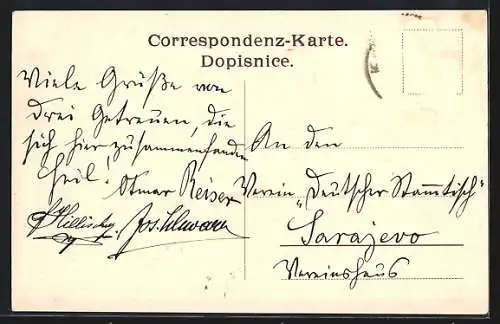 Correspondenz-Karte.
Dopisnice.
Viele Grüße von
drei Getreuen, die
sich hier zusammenfanden
Heil! Otmar Reiser
Jos. Schwarz
An den
Verein „Deutscher Stammtisch“
Sarajevo
Vereinshaus